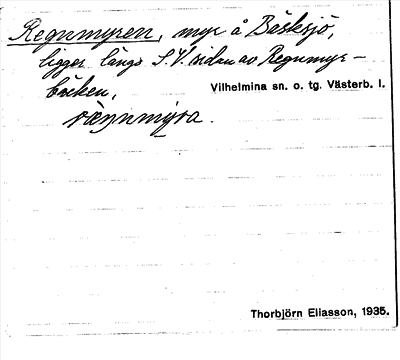 Regnmyren, myr å Bäsksjö,
ligger längs S.V. sidan av Regnmyr-
bäcken.
Vilhelmina sn. o. tg. Västerb. l.
ræŋnmyra.
Thorbjörn Eliasson, 1935.